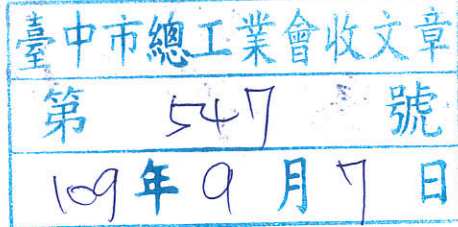 臺中市總工業會收文章
第 547 號
109年9月7日